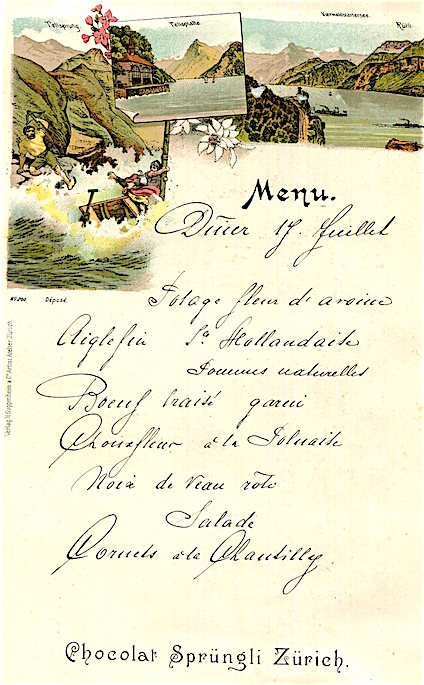 Tellsprung.
Tellsplatte.
Vierwaldstättersee.
Rütli.
Menu.
Dîner 17 Juillet
No. 200 Déposé.
Potage fleur d'avoine
Aiglefin Sce Hollandaise
Pommes naturelles
Boeuf braisé garni
Chouxfleur à la Polonaise
Noix de Veau rôti
Salade
Cornets à la Chantilly
Chocolat Sprüngli Zürich.